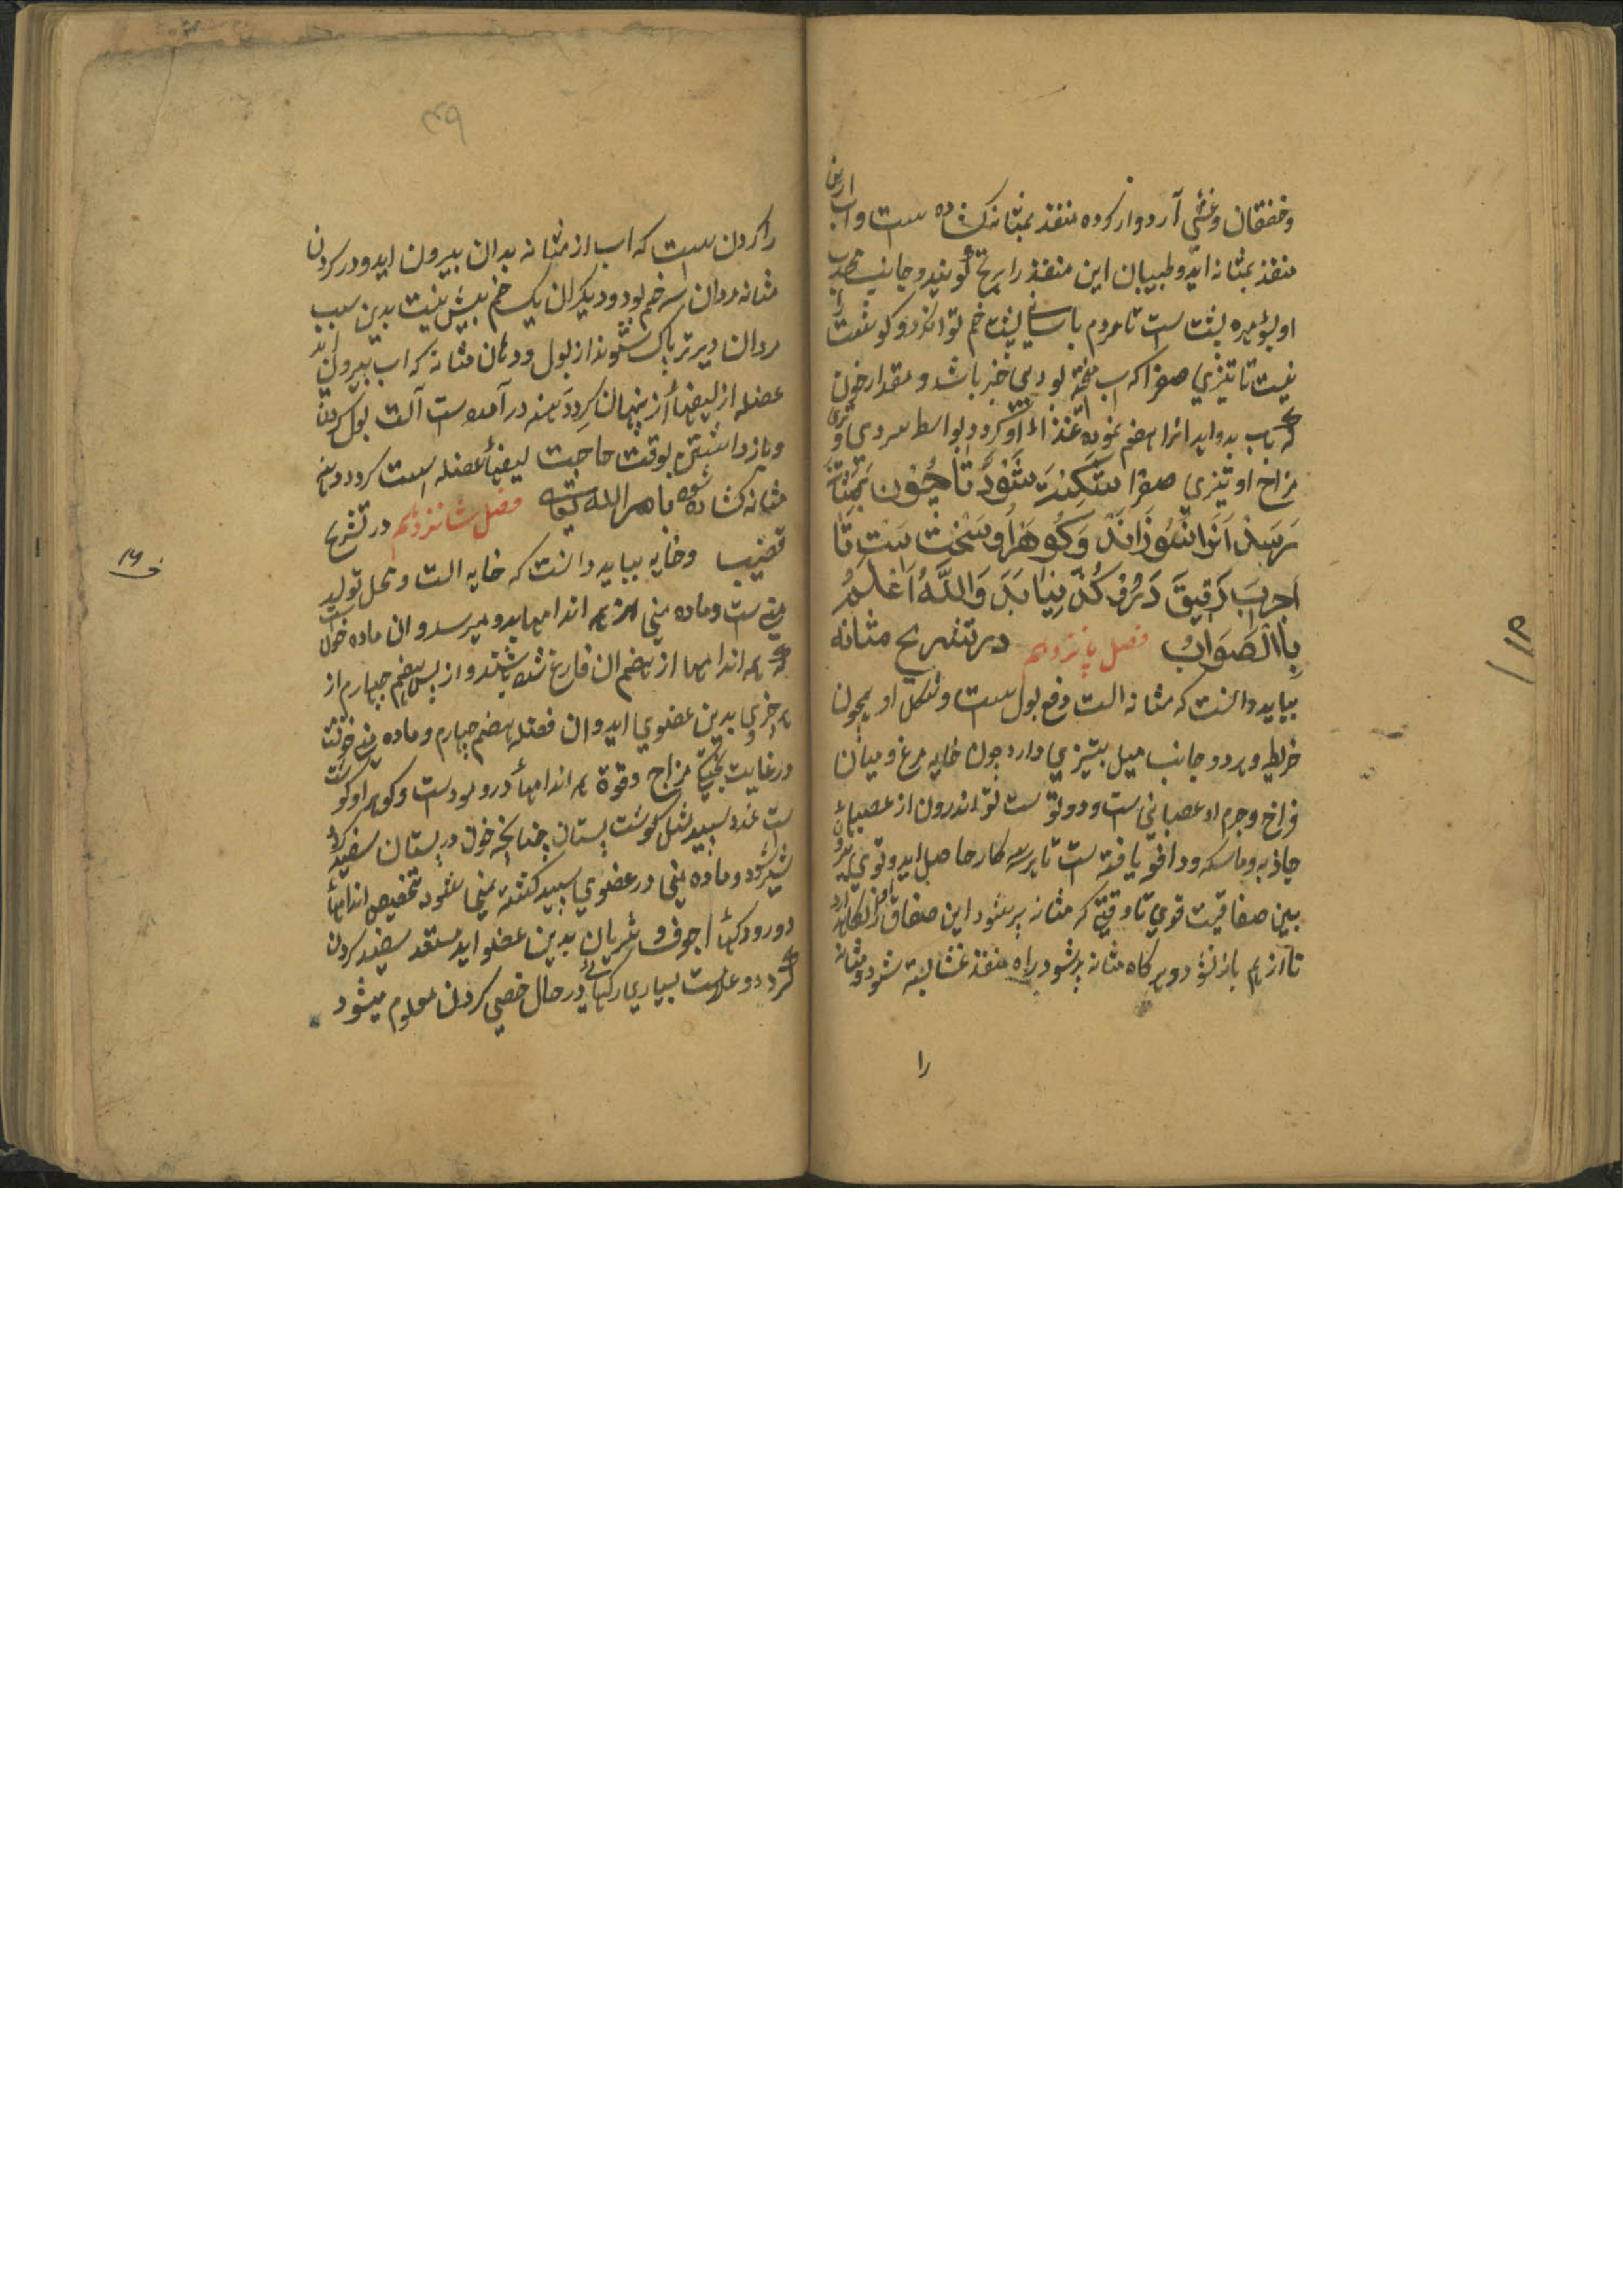 وخفقان وغشي آرد واز کرده منفذ بمثانه کشاده است واب ازین
منفذ بمثانه اید وطبیبان این منفذ را بربخ گویند وجانب محدب
او بوی مهره پشت ست تا مردم باسانی پشت خم تواند کرد و کوشت را
نیست تا تیزي صفرا که اب میخته بود بی خبر باشد و مقدار خون
که باب بدو اید انرا هضم نموده غذاء او کردد بواسط سردي وتری
مزاج او تیزي صفرا ستکند شود تا چون بمثانه
رسد انرا نسوزاند وکوهراو سخت ست تا
اجرب رقیق دروکذر نیابد والله اعلم
باالصواب فصل پانزدهم در تشریح مثانه
بباید دانست که مثانه الت دفع بول ست وشکل او همچون
خریطه وهر دو جانب میل بتیزي دارد چون خایه مرغ ومیان
فراخ وجرم او عصبانی ست ودو تو ست تو اندرون از عصبهاء
جاذبه وماسکه ودافعه یافته ست تا هر سه کار حاصل اید وتوي بیرون
بین صفاقیت قوي تا وقتی که مثانه پر شود این صفاق او را نکاه دارد
تا از هم باز نشود وهر کاه مثانه پر شود راه منفذ غشا بسته شود ومثانه
را
۳۹
را کردن ست که اب از مثانه بدان بیرون اید ودر کردن
مثانه مردان سه خم بود ودیکران یک خم بیش نیست بدین سبب
مردان دیرتر پاک شوند از بول ودهان مثانه که اب بیرون اید
عضله از لیفهاء از پنهان کردد بمنه در آمده ست آلت بول کردن
وبازداشتن بوقت حاجت لیفهاء عضله سست کردد ودهن
مثانه کشاده شود بامر الله تعالی فصل شانزدهم در تشریح
قضیب وخایه بباید دانست که خایه الت ومحل تولید
منی ست وماده منی از همه اندامها بدو میرسد وان ماده خون ست
که همه اندامها از هضم ان فارغ شده باشند واز پس هضم چهارم از
هر جزوي بدین عضوي اید وان فضله هضم چهارم وماده منی خونست
در غایت پختکی مزاج وقوة همه اندامهاء درو موجودست وکوهر او کوشت
ست غدد سپید مثل کوشت پستان چنانچه خون در پستان سفید کردد
شیر شود وماده منی در عضوي سپید کشته منی شود تخصیص اندامهاء
دورود رکهاء اجوف و شریان بدین عضو اید مستعد سفید کردن
کردد وعلامت بسیاری رکهاي در حال خصی کردن معلوم میشود
ف ۱۶